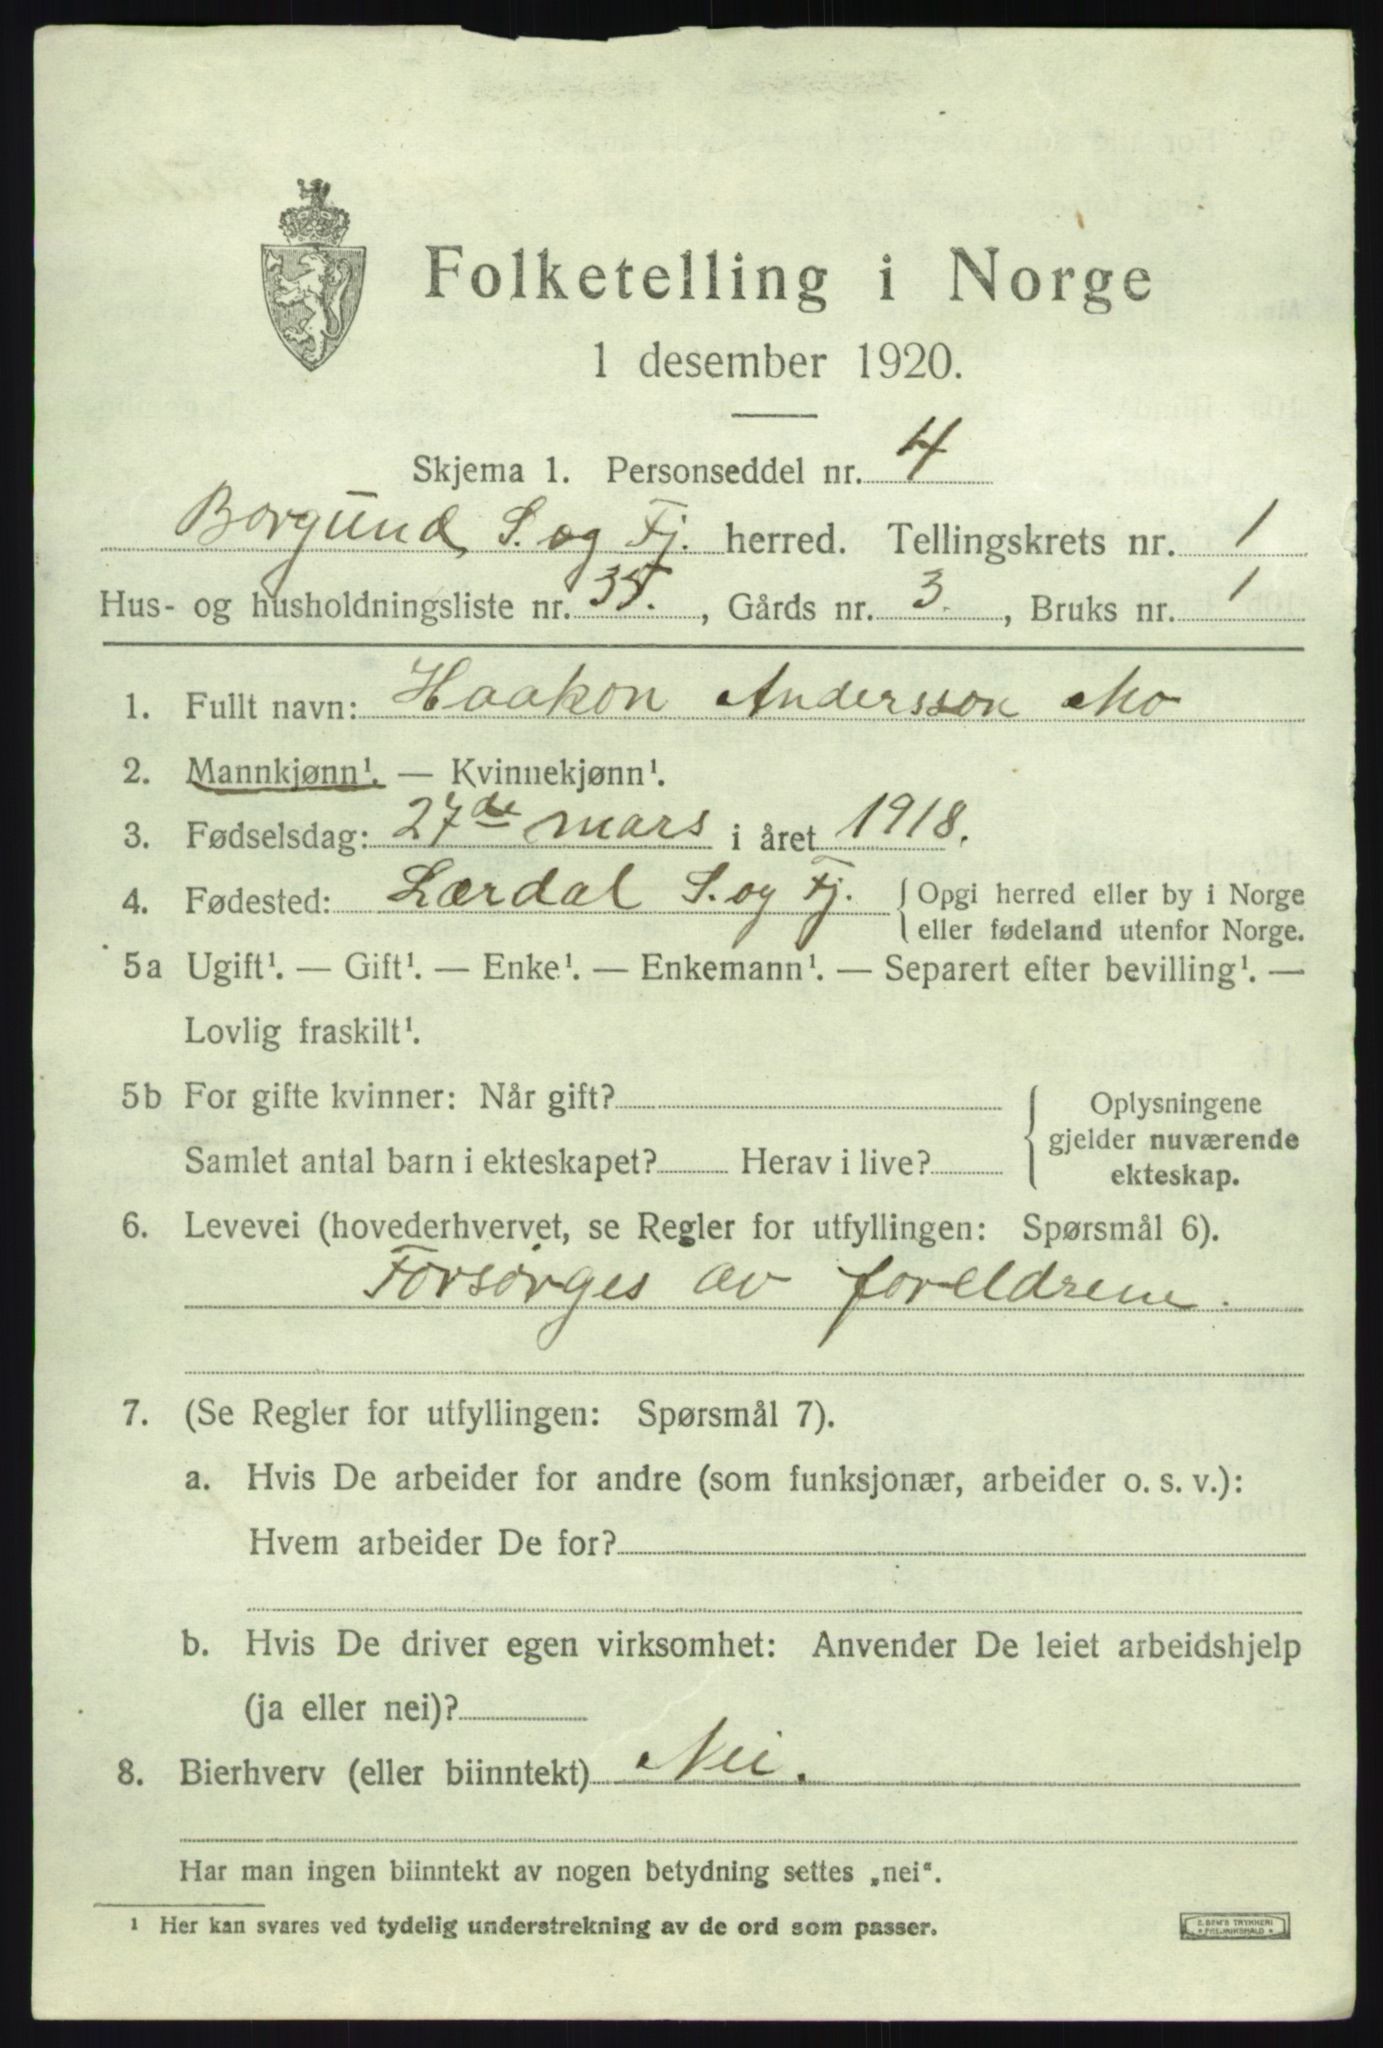 Folketelling i Norge
1 desember 1920.
Skjema 1. Personseddel nr. 4
Borgund S. og Fj. herred. Tellingskrets nr. 1
Hus- og husholdningsliste nr. 35., Gårds nr. 3., Bruks nr. 1
1. Fullt navn: Haakon Andersson Mo
2. Mannkjønn¹. — Kvinnekjønn¹.
3. Fødselsdag: 27de mars i året 1918.
4. Fødested: Lærdal S. og Fj. { Opgi herred eller by i Norge
eller fødeland utenfor Norge.
5a Ugift¹. — Gift¹. — Enke¹. — Enkemann¹. — Separert efter bevilling¹. —
Lovlig fraskilt¹.
5b For gifte kvinner: Når gift?
Samlet antal barn i ekteskapet? Herav i live?
Oplysningene
gjelder nuværende
ekteskap.
6. Levevei (hovederhvervet, se Regler for utfyllingen: Spørsmål 6).
Forsørges av foreldrene.
7. (Se Regler for utfyllingen: Spørsmål 7).
a. Hvis De arbeider for andre (som funksjonær, arbeider o. s. v.):
Hvem arbeider De for?
b. Hvis De driver egen virksomhet: Anvender De leiet arbeidshjelp
(ja eller nei)?
8. Bierhverv (eller biinntekt) Nei.
Har man ingen biinntekt av nogen betydning settes „nei“.
¹ Her kan svares ved tydelig understrekning av de ord som passer.
TRYKKERI